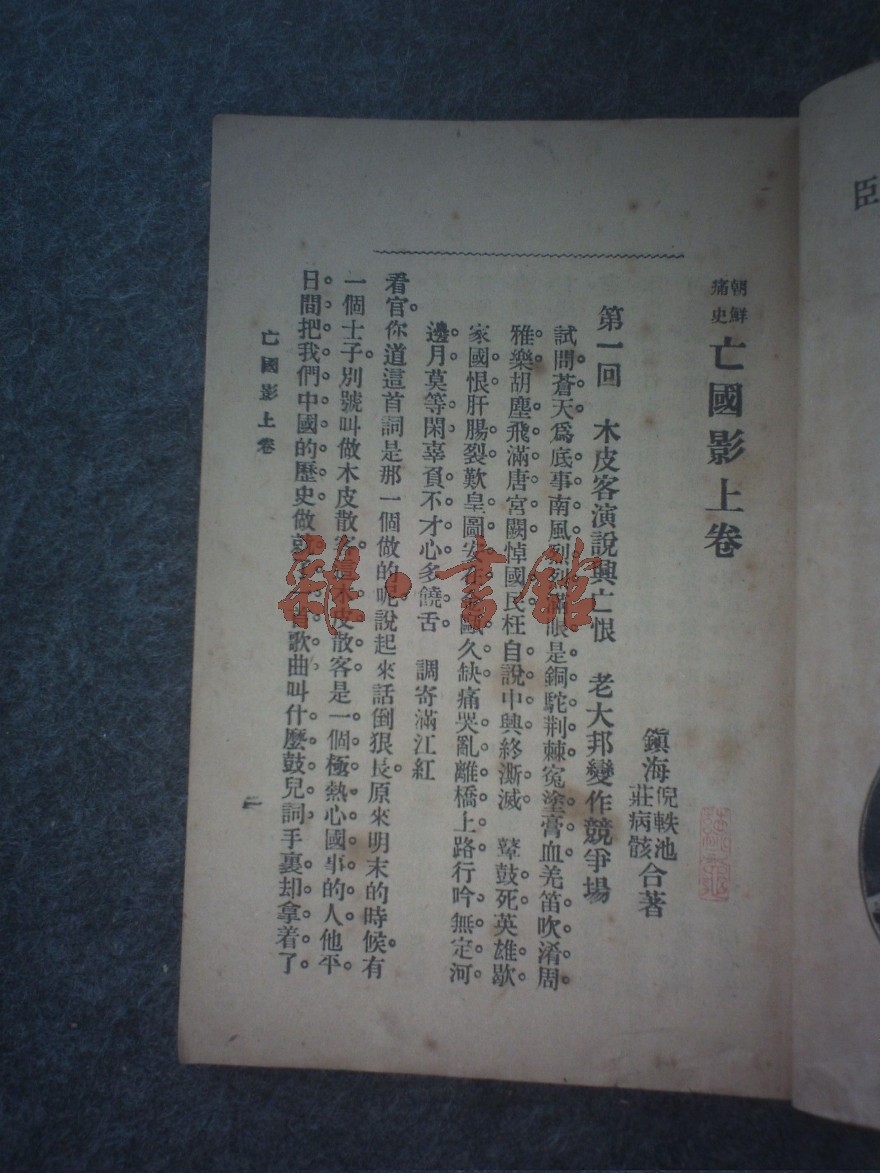 朝鮮痛史 亡國影上卷
鎭海 倪軼池 莊病骸 合著
第一回 木皮客演說興亡恨 老大邦變作競爭場
試問蒼天爲底事南風烈烈滿眼是銅駝荆棘寃塗膏血羌笛吹淆周
雅樂胡塵飛滿唐宮闕悼國民枉自說中興終澌滅 鼙鼓死英雄歇
家國恨肝腸裂歎皇圖安在金甌久缺痛哭亂離橋上路行吟無定河
邊月莫等閑辜負不才心多饒舌 調寄滿江紅
看官你道這首詞是那一個做的呢說起來話倒狠長原來明末的時候有
一個士子別號叫做木皮散客這木皮散客是一個極熱心國事的人他平
日間把我們中國的歷史做就了一首歌曲叫什麽鼓兒詞手裏却拿着了
亡國影上卷
二
臣
雜·書館